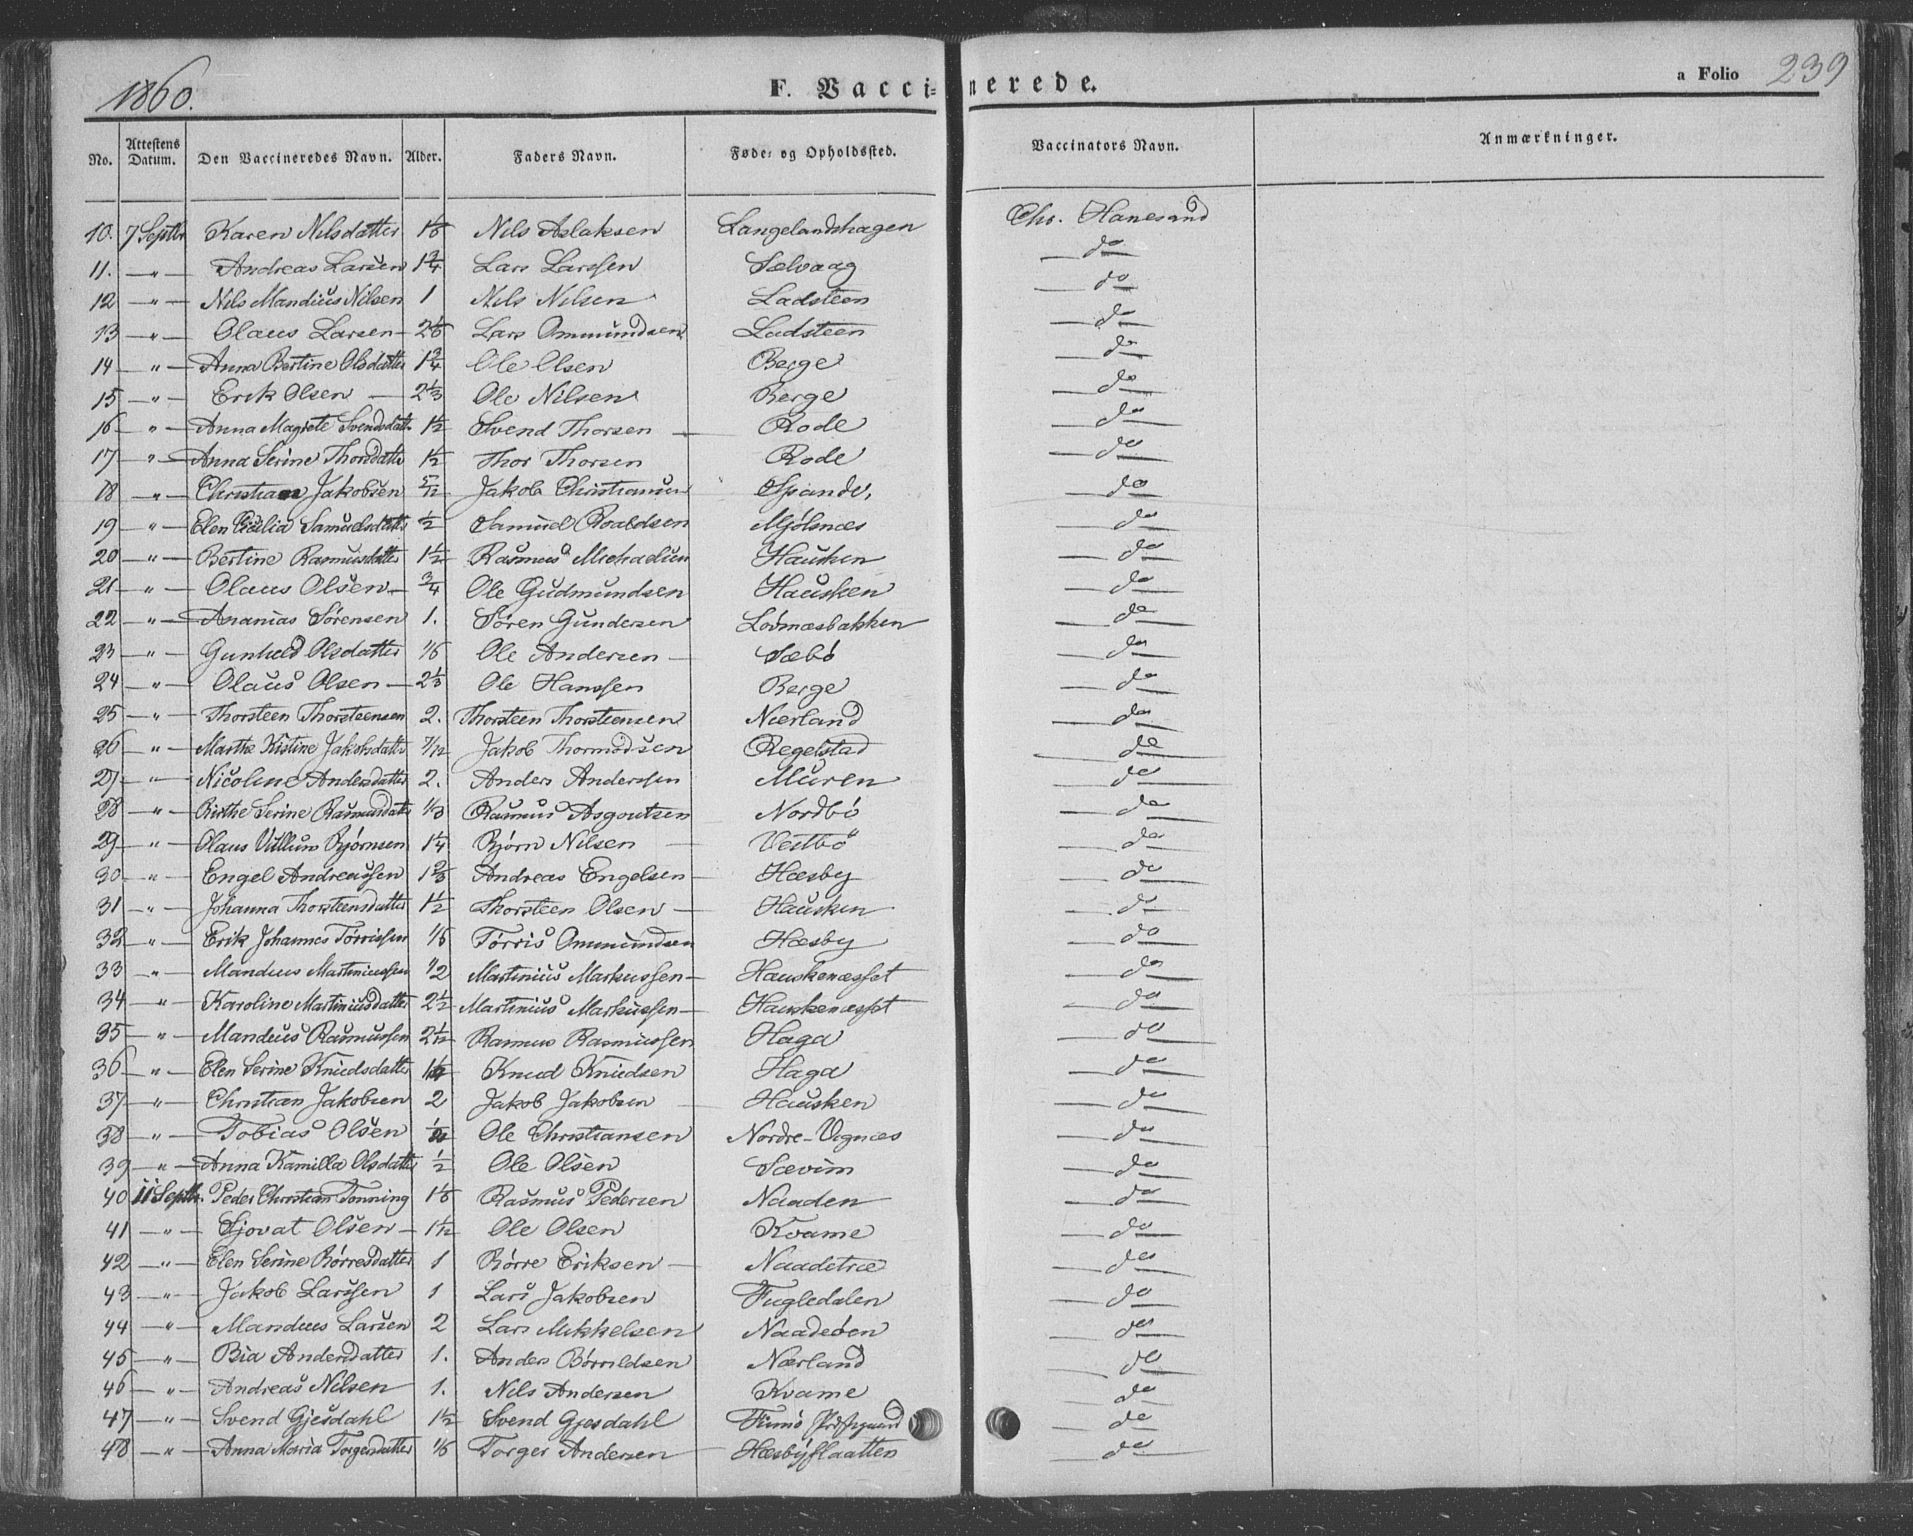 1860.
F. Vaccinerede.
a Folio 239
No. Attestens Datum. Den Vaccineredes Navn. Alder. Faders Navn. Føde- og Opholdssted. Vaccinators Navn. Anmærkninger.
10. 7 Septbr Karen Nilsdatter Nils Aslaksen Langelandshagen Chr. Hanesand
11. —"— Andreas Larsen 1¾ Lars Larssen Sælvaag do
12 —"— Nils Mandius Nilsen 1 Nils Nilsen Ladsteen do
13 —"— Olaus Larsen Lars Ommundsen Ladsteen do
14 —"— Anna Bertine Olsdatter 1¾ Ole Olsen Berge do
15 —"— Erik Olsen 2⅓ Ole Nilsen Berge do
16 —"— Anna Magrete Svendsdatt. 1½ Svend Thorsen Rode do
17 —"— Anna Serine Thorsdatter 1½ Thor Thorsen Rode do
18 —"— Christian Jakobsen 5/12 Jakob Christiansen Spande, do
19 —"— Elen Cecilia Samuelsdatter ½ Samuel Roaldsen Mjølsnæs do
20 —"— Bertine Rasmusdatter 1½ Rasmus Michaelsen Hausken do
21 —"— Olaus Olsen ¾ Ole Gudmundsen Hausken do
22 —"— Ananias Sørensen 1. Søren Gundersen Lodnæsbakken do
23 —"— Gunheld Olsdatter Ole Andersen Sæbø do
24 —"— Olaus Olsen 2⅓ Ole Hanssen Berge do
25 —"— Thorsteen Thorsteensen 2. Thorsteen Thorsteensen Nærland do
26 —"— Marthe Kistine Jakobsdatter 7/12 Jakob Thormodsen Regelstad do
27 —"— Nicoline Andersdatter 2. Anders Anderssen Muren do
28 —"— Birthe Serine Rasmusdatt. ⅓ Rasmus Asgoutsen Nordbø do
29 —"— Olaus Villum Bjørnsen 1¼ Bjørn Nilsen Vestbø do
30 —"— Engel Andreassen 1⅔ Andreas Engelsen Hæsby do
31 —"— Johanna Thorsteensdatter 1½ Thorsteen Olsen Hausken do
32 —"— Erik Johannes Tørrissen Tørris Ommundsen Hæsby do
33 —"— Mandius Martiniussen ½ Martinius Markussen Hauskenæsset do
34 —"— Karoline Martiniusdatter 2½ Martinius Markussen Hauskenæsset do
35 —"— Mandius Rasmussen Rasmus Rasmussen Haga do
36 —"— Elen Serine Knudsdatter Knud Knudsen Haga do
37 —"— Christian Jakobsen 2 Jakob Jakobsen Hausken do
38 —"— Tobias Olsen Ole Christiansen Nordre-Vignæs do
39 —"— Anna Kamilla Olsdatter ½ Ole Olsen Sævim do
40 11 Septbr. Peder Christian Tonning Rasmus Pedersen Naaden do
41 —"— Sjovat Olsen Ole Olsen Kvame do
42 —"— Elen Serine Børresdatter 1 Børre Eriksen Naadetræ do
43 —"— Jakob Larssen 1 Lars Jakobsen Fugledalen do
44 —"— Mandius Larsen 2 Lars Mikkelsen Naadeøen do
45 —"— Bia Andersdatter 1. Anders Børrildsen Nærland do
46 —"— Andreas Nilsen 1. Nils Andersen Kvame do
47 —"— Svend Gjesdahl 1½ Svend Gjesdahl Finnø Præstegaard do
48 —"— Anna Maria Torgersdatter Torger Andersen Hæsbyflaatten do